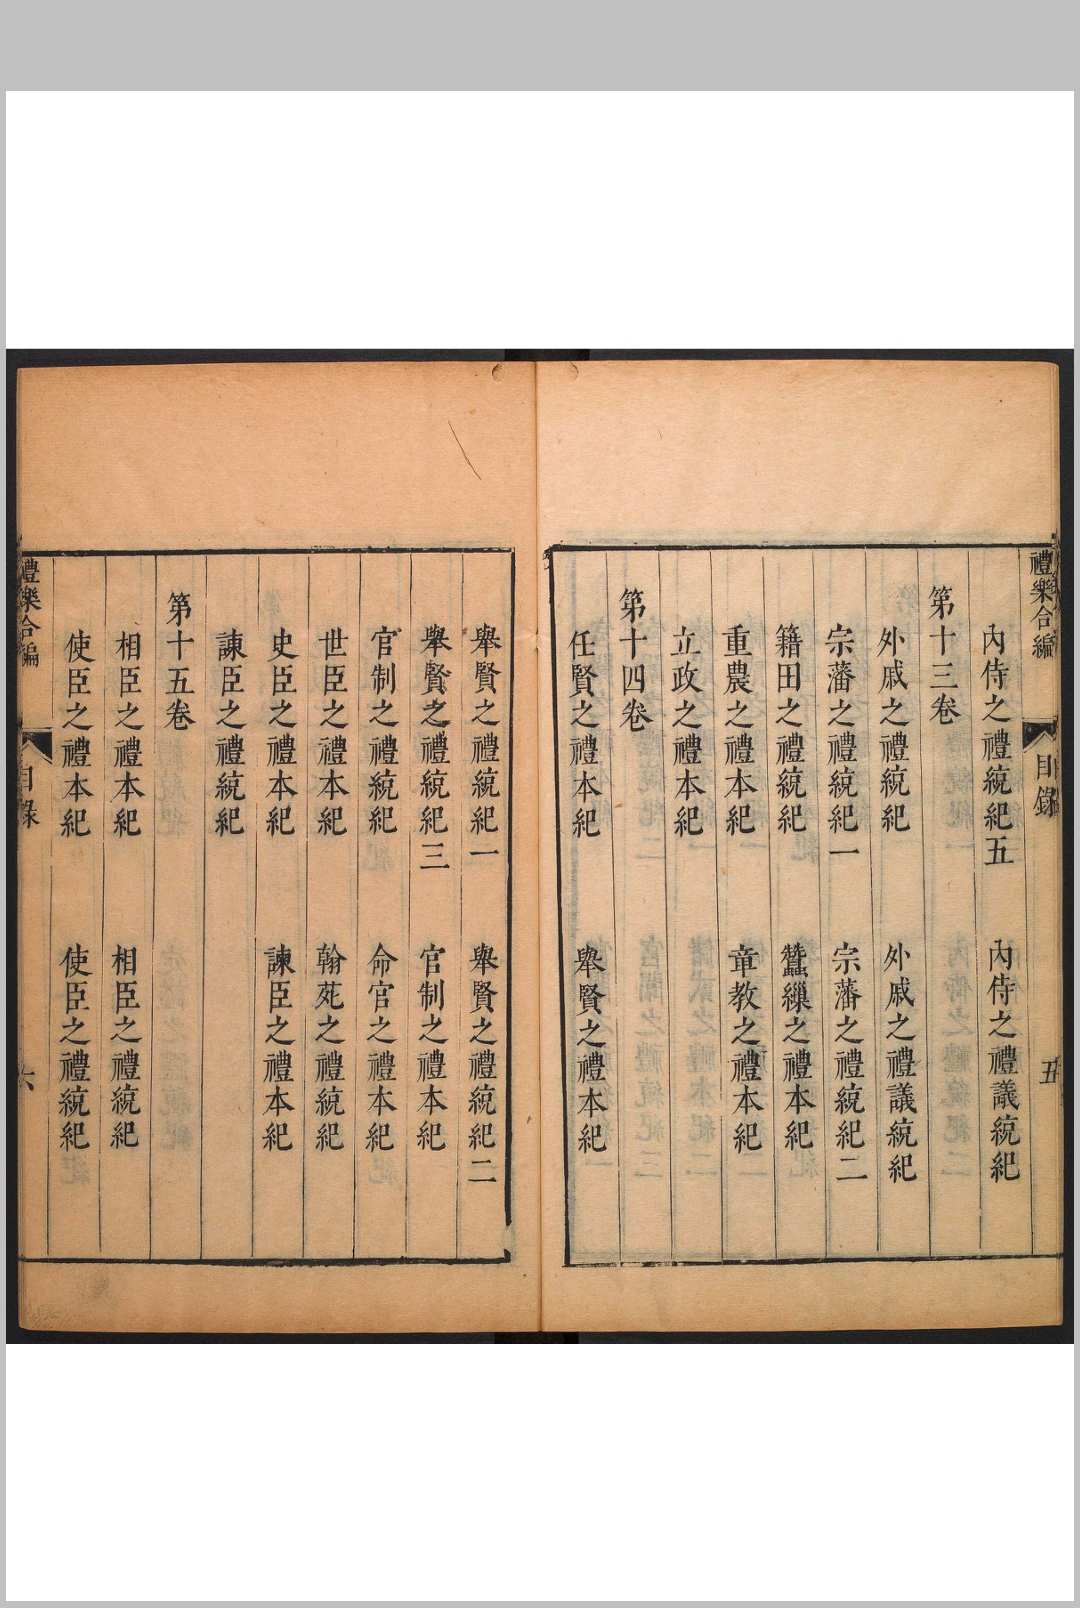 禮樂合編 目錄 五
內侍之禮統紀五 內侍之禮議統紀
第十三卷
外戚之禮統紀 外戚之禮議統紀
宗藩之禮統紀一 宗藩之禮統紀二
籍田之禮統紀 蠶繅之禮本紀
重農之禮本紀 章教之禮本紀
立政之禮本紀
第十四卷
任賢之禮本紀 舉賢之禮本紀
舉賢之禮統紀一 舉賢之禮統紀二
舉賢之禮統紀三 官制之禮本紀
官制之禮統紀 命官之禮本紀
世臣之禮本紀 翰苑之禮統紀
史臣之禮本紀 諫臣之禮本紀
諫臣之禮統紀
第十五卷
相臣之禮本紀 相臣之禮統紀
使臣之禮本紀 使臣之禮統紀
禮樂合編 目錄 六